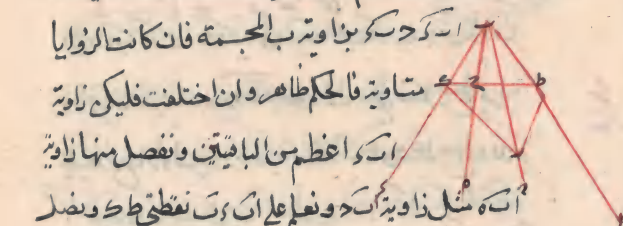 اب‍ء د ب‍ء بزاوية ب المجسمة فان كانت الزوايا
متساوية فالحكم ظاهر وان اختلفت فليكن زاوية
اب‍ء اعظم من الباقيتين ونفصل منها زاوية
اب‍ه مثل زاوية اب‍د ونعلم على اب ءب نقطتي ط ك ونصل
ب
ك ح ط